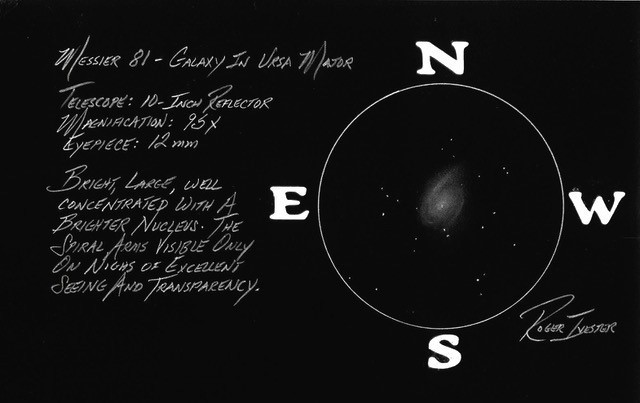 Messier 81 - Galaxy In Ursa Major
Telescope: 10-Inch Reflector
Magnification: 95x
Eyepiece: 12mm
Bright, Large, well
concentrated with A
Brighter Nucleus. The
Spiral Arms Visible Only
On Nighs of Excellent
Seeing And Transparency.
N
E
W
S
Roger Ivester